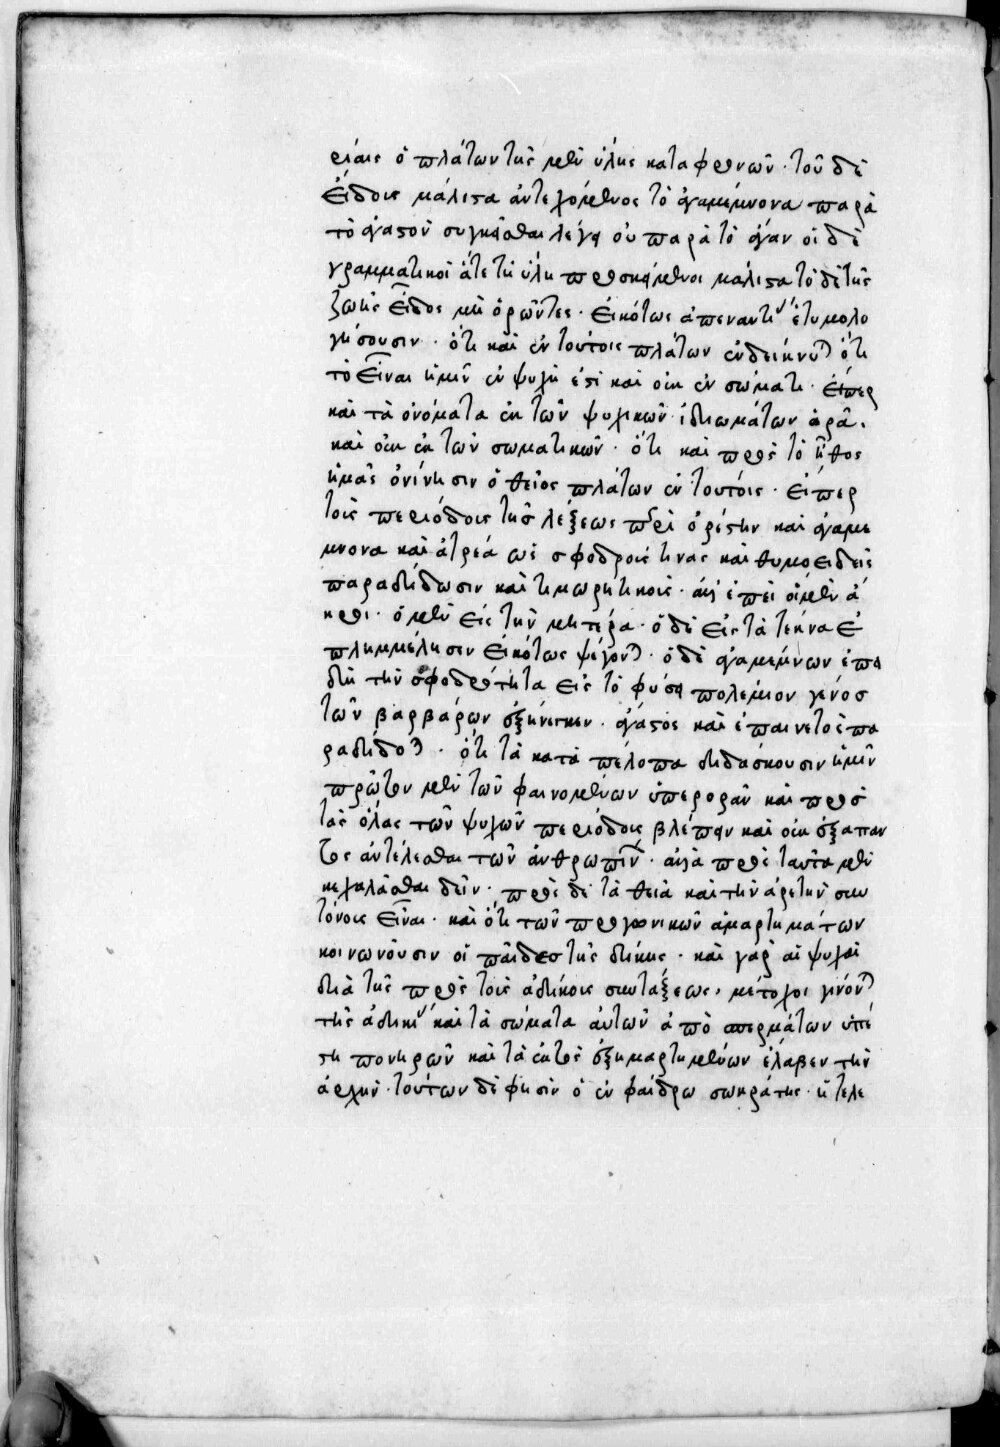 ρίαις ὁ πλάτων τῆς μὲν ὕλης καταφρονῶν · τοῦ δὲ
εἴδους μάλιστα ἀντεχόμενος τὸ ἀγαμέμνονα παρὰ
τὸ ἀγαστὸν συγκεῖσθαι λέγει οὐ παρὰ τὸ ἄγαν οἱ δὲ
γραμματικοὶ ἅτε τῇ ὕλῃ προσκείμενοι μάλιστα τὸ δὲ τῆς
ζωῆς εἶδος μὴ ὁρῶντες · εἰκότως ἀπεναντίως ἐτυμολο
γήσουσιν · ὅτι καὶ ἐν τούτοις πλάτων ἐνδείκνυται ὅτι
τὸ εἶναι ἡμῖν ἐν ψυχῇ ἐστὶ καὶ οὐκ ἐν σώματι · εἴπερ
καὶ τὰ ὀνόματα ἐκ τῶν ψυχικῶν ἰδιωμάτων ὁρᾷ ·
καὶ οὐκ ἐκ τῶν σωματικῶν · ὅτι καὶ πρὸς τὸ ἦθος
ἡμᾶς ὀνίνησιν ὁ θεῖος πλάτων ἐν τούτοις · εἴπερ
τοῖς περιόδοις τῆς λέξεως περὶ ὀρέστην καὶ ἀγαμέ
μνονα καὶ ἀτρέα ὡς σφοδρούς τινας καὶ θυμοειδεῖς
παραδίδωσιν καὶ τιμωρητικούς · ἀλλ' ἐπεὶ οἱ μὲν ἄ
κροι · ὁ μὲν εἰς τὴν μητέρα · ὁ δὲ εἰς τὰ τέκνα ἐ
πλημμέλησεν εἰκότως ψέγονται · ὁ δὲ ἀγαμέμνων ἐπει
δὴ τὴν σφοδρότητα εἰς τὸ φύσει πολέμιον γένος
τῶν βαρβάρων ἐξήνεγκεν · ἀγαστὸς καὶ ἐπαινετὸς πα
ραδίδοται · ὅτι τὰ κατὰ πέλοπα διδάσκουσιν ἡμῖν
πρῶτον μὲν τῶν φαινομένων ὑπερορᾶν καὶ πρὸς
τὰς ὅλας τῶν ψυχῶν περιόδους βλέπειν καὶ οὐκ ἐξ ἅπαν
τος ἀντέχεσθαι τῶν ἀνθρωπίνων · ἀλλὰ πρὸς ταῦτα μὲν
κεχαλάσθαι δεῖν · πρὸς δὲ τὰ θεῖα καὶ τὴν ἀρετὴν συν
τόνους εἶναι · καὶ ὅτι τῶν προγονικῶν ἁμαρτημάτων
κοινωνοῦσιν οἱ παῖδες τῆς δίκης · καὶ γὰρ αἱ ψυχαὶ
διὰ τῆς πρὸς τοὺς ἀδίκους συντάξεως · μέτοχοι γίνονται
τῆς ἀδικίας καὶ τὰ σώματα αὐτῶν ἀπὸ σπερμάτων ὑπέ
στη πονηρῶν καὶ τὰ ἐκτὸς ἐξημαρτημένων ἔλαβεν τὴν
ἀρχήν · τούτων δὲ φησὶν ὁ ἐν φαίδρω σωκράτης · ἡ τελε